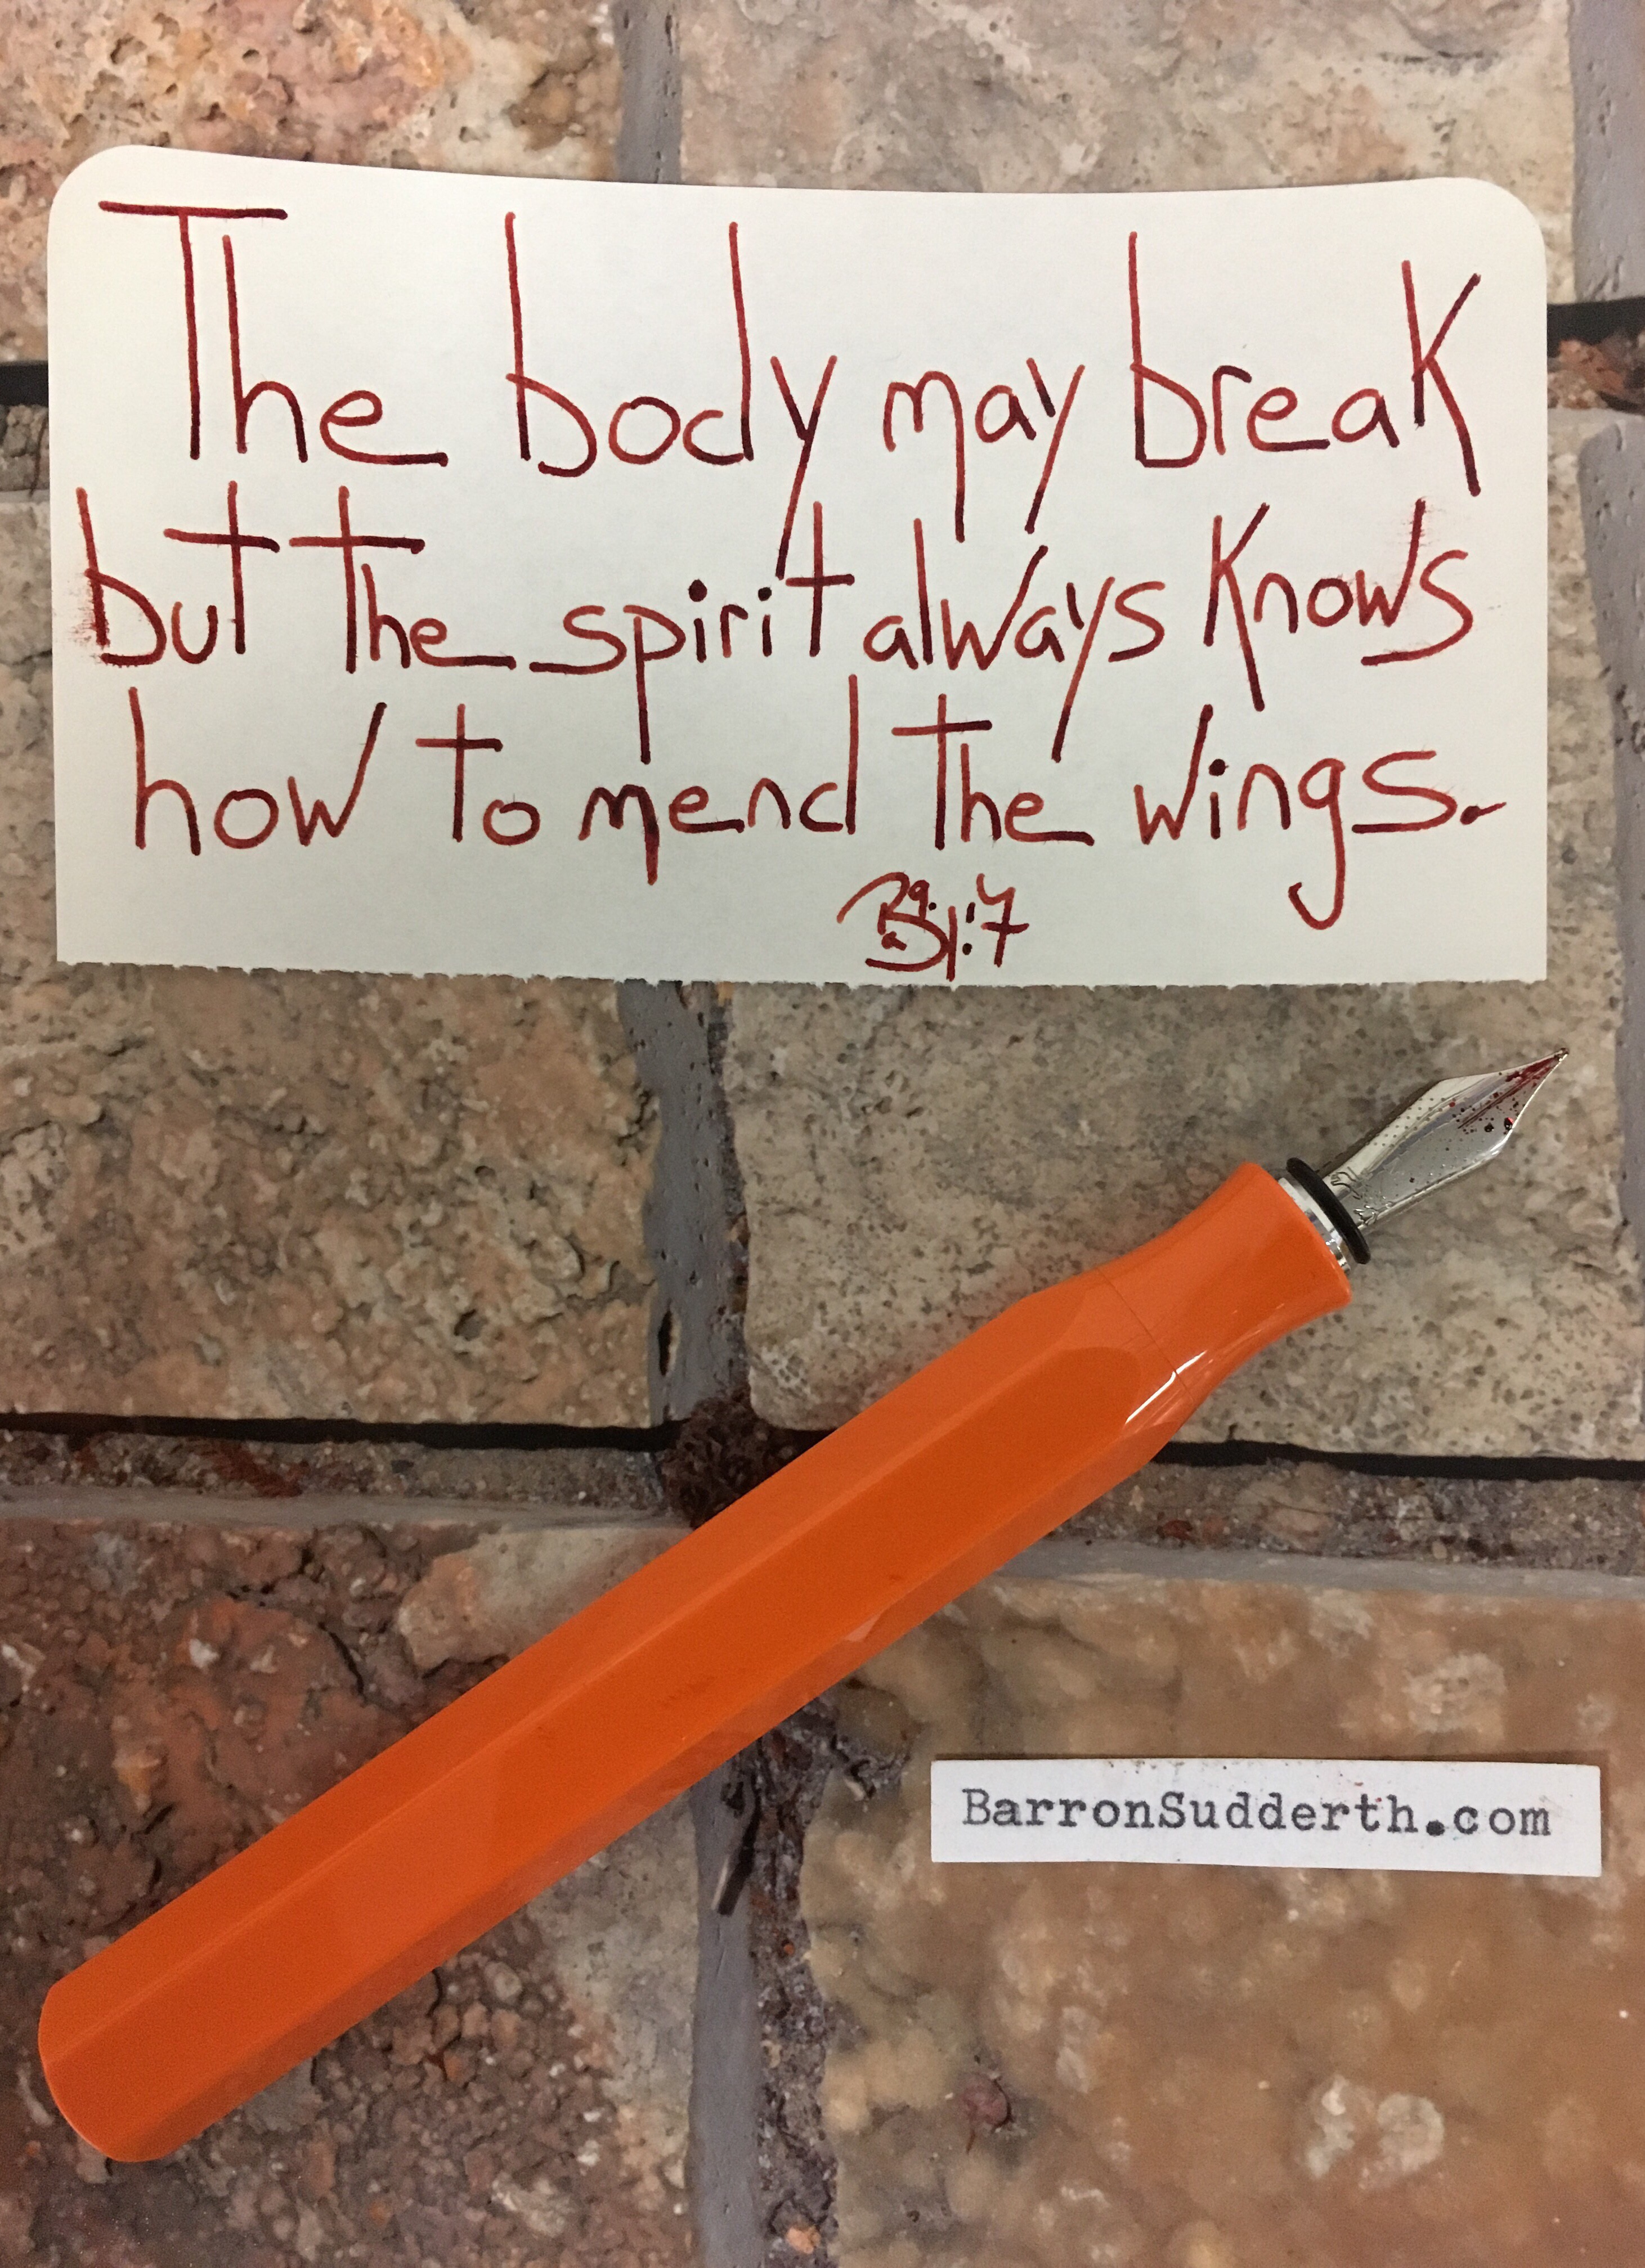 The body may break
but the spirit always knows
how to mend the wings.
BarronSudderth.com